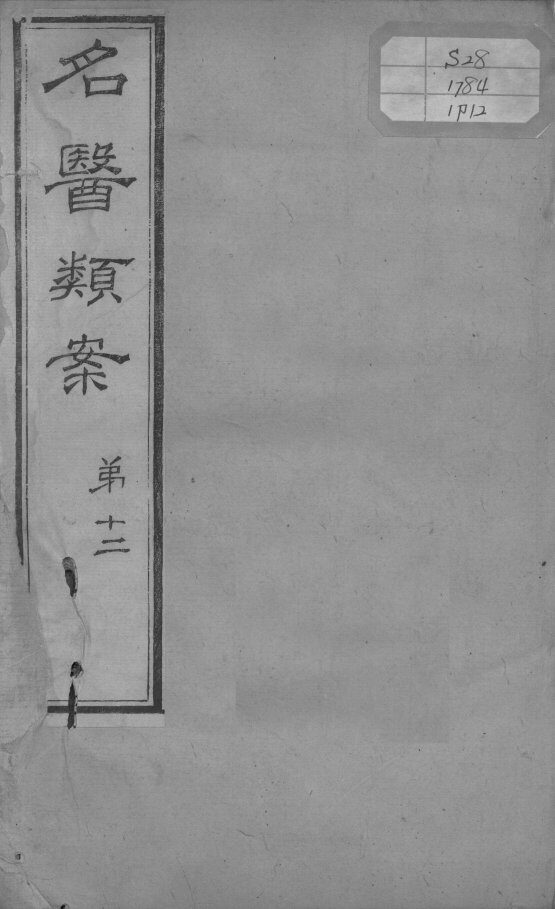 名醫類案
弟十二
S28
1784
1P12